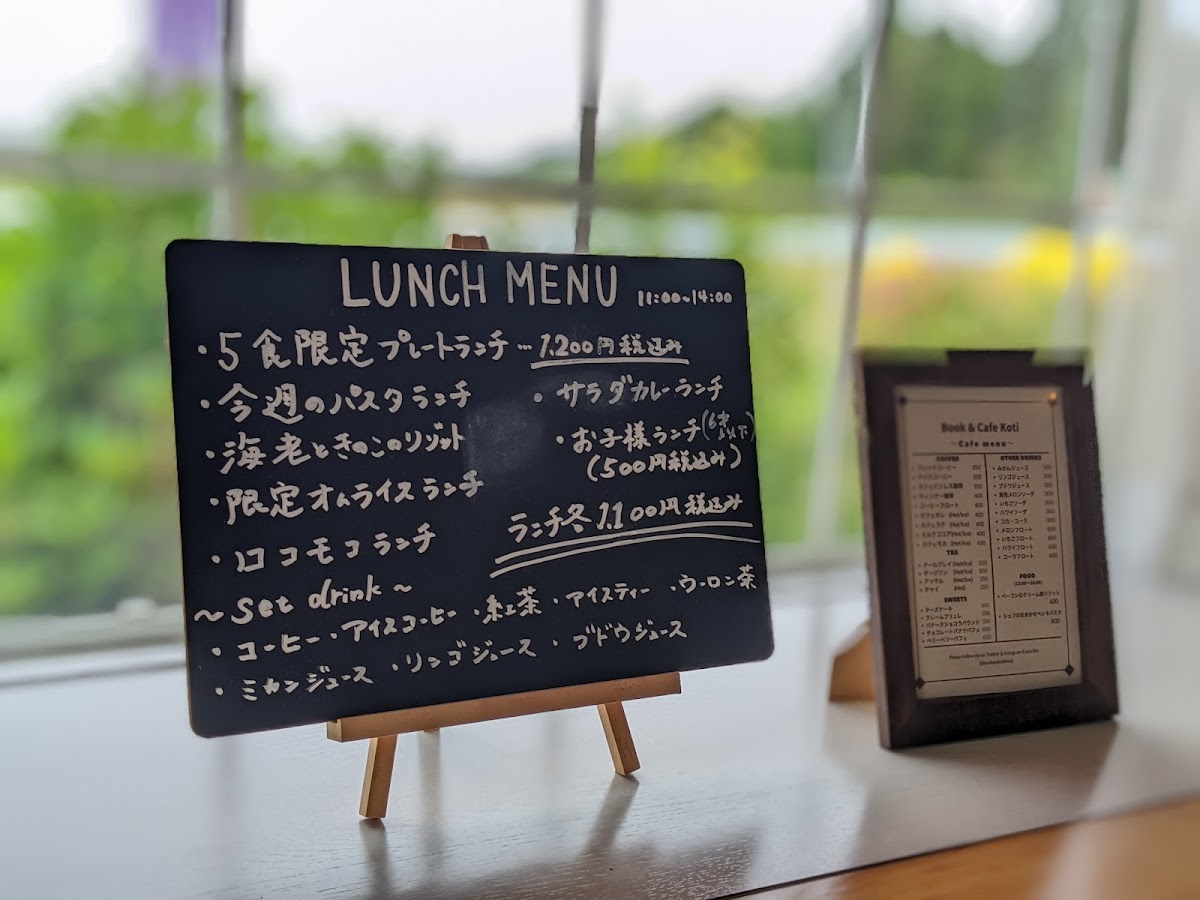 LUNCH MENU 11:00~14:00
・5食限定プレートランチ…1,200円税込み
・今週のパスタランチ
・サラダカレーランチ
・海老ときのこのリゾット
・お子様ランチ(6才以下)
(500円税込み)
・限定オムライスランチ
ランチ各1,100円税込み
・ロコモコランチ
~Set drink~
・コーヒー・アイスコーヒー・紅茶・アイスティー・ウーロン茶
・ミカンジュース・リンゴジュース・ブドウジュース
Book & Cafe Koti
~Cafe menu~
COFFEE
カフェモカ (Hot/Ice) 450
TEA
・アールグレイ (Hot/Ice) 350
・ダージリン (Hot/Ice) 350
・アッサム (Hot/Ice) 350
・チャイ (Hot) 350
SWEETS
・チーズケーキ
・クレームブリュレ 350
・バナナショコラパウンド 350
・チョコレートバナナパフェ
・ベリーベリーパフェ 650
OTHER DRINKS
・みかんジュース 300
・リンゴジュース 300
・ブドウジュース 300
・いちごソーダ
・ハワイソーダ
・コカ・コーラ
・メロンフロート 400
・いちごフロート 400
・ハワイフロート 400
・コーラフロート 400
FOOD
・ベーコンのクリーム風リゾット
600
・シェフのおまかせペンネパスタ
800